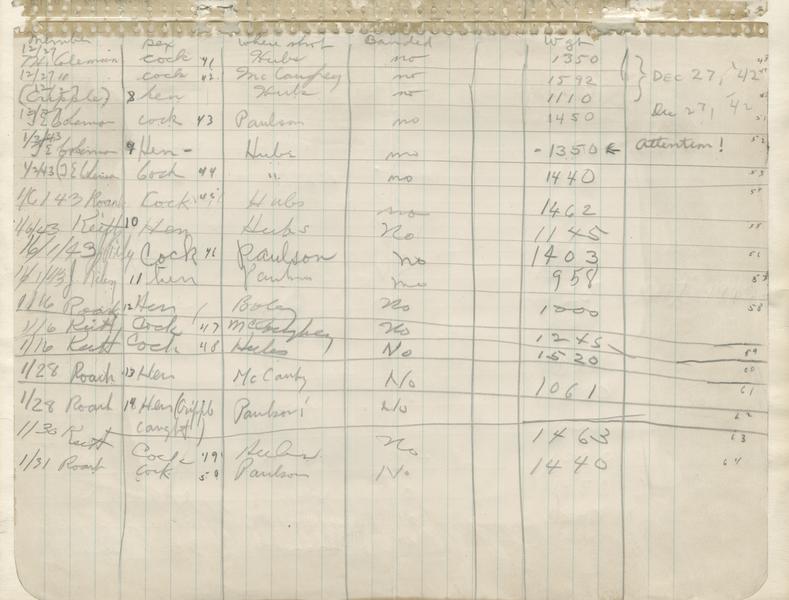 member sex where shot Banded Wgt
12/27
T.H. Coleman cock 41 Hubs no 1350
12/27 cock 42 McCaughey no 1592 } DEC 27, '42
(Cripple) 8 hen Hubs no 1110
Dec 27, '42
J E Coleman cock 43 Paulson no 1450 51
1/2/43 52
J E Coleman 9 Hen - Hubs no - 1350 ← Attention!
1/2/43 J E Cock 44 " no 1440 53
1/6/43 Roark Cock 45 Hubs no 1462 54
1/6/43 Keitt 10 Hen Hubs No 1145 55
Cock 46 Paulson no 1403 56
11 hen no 958 57
1/16 Roark 12 Hen Boley No 1000 58
1/16 Keitt Cock 47 No 1245 59
1/16 Keitt Cock 48 Hubs No 1520 60
1/28 Roark 13 Hen No 1061 61
1/28 Roark 14 Hen (Cripple Paulson No 62
caught)
1/30 Keitt Cock 49 Hubs No 1463 63
1/31 Roark Cock 50 Paulson No 1440 64